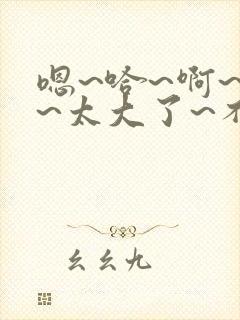 嗯~哈~啊~
~太大了~不
幺幺九